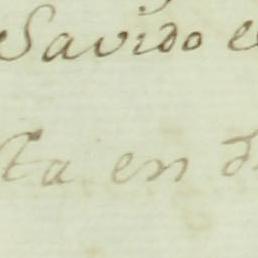 Savido e
ta en d